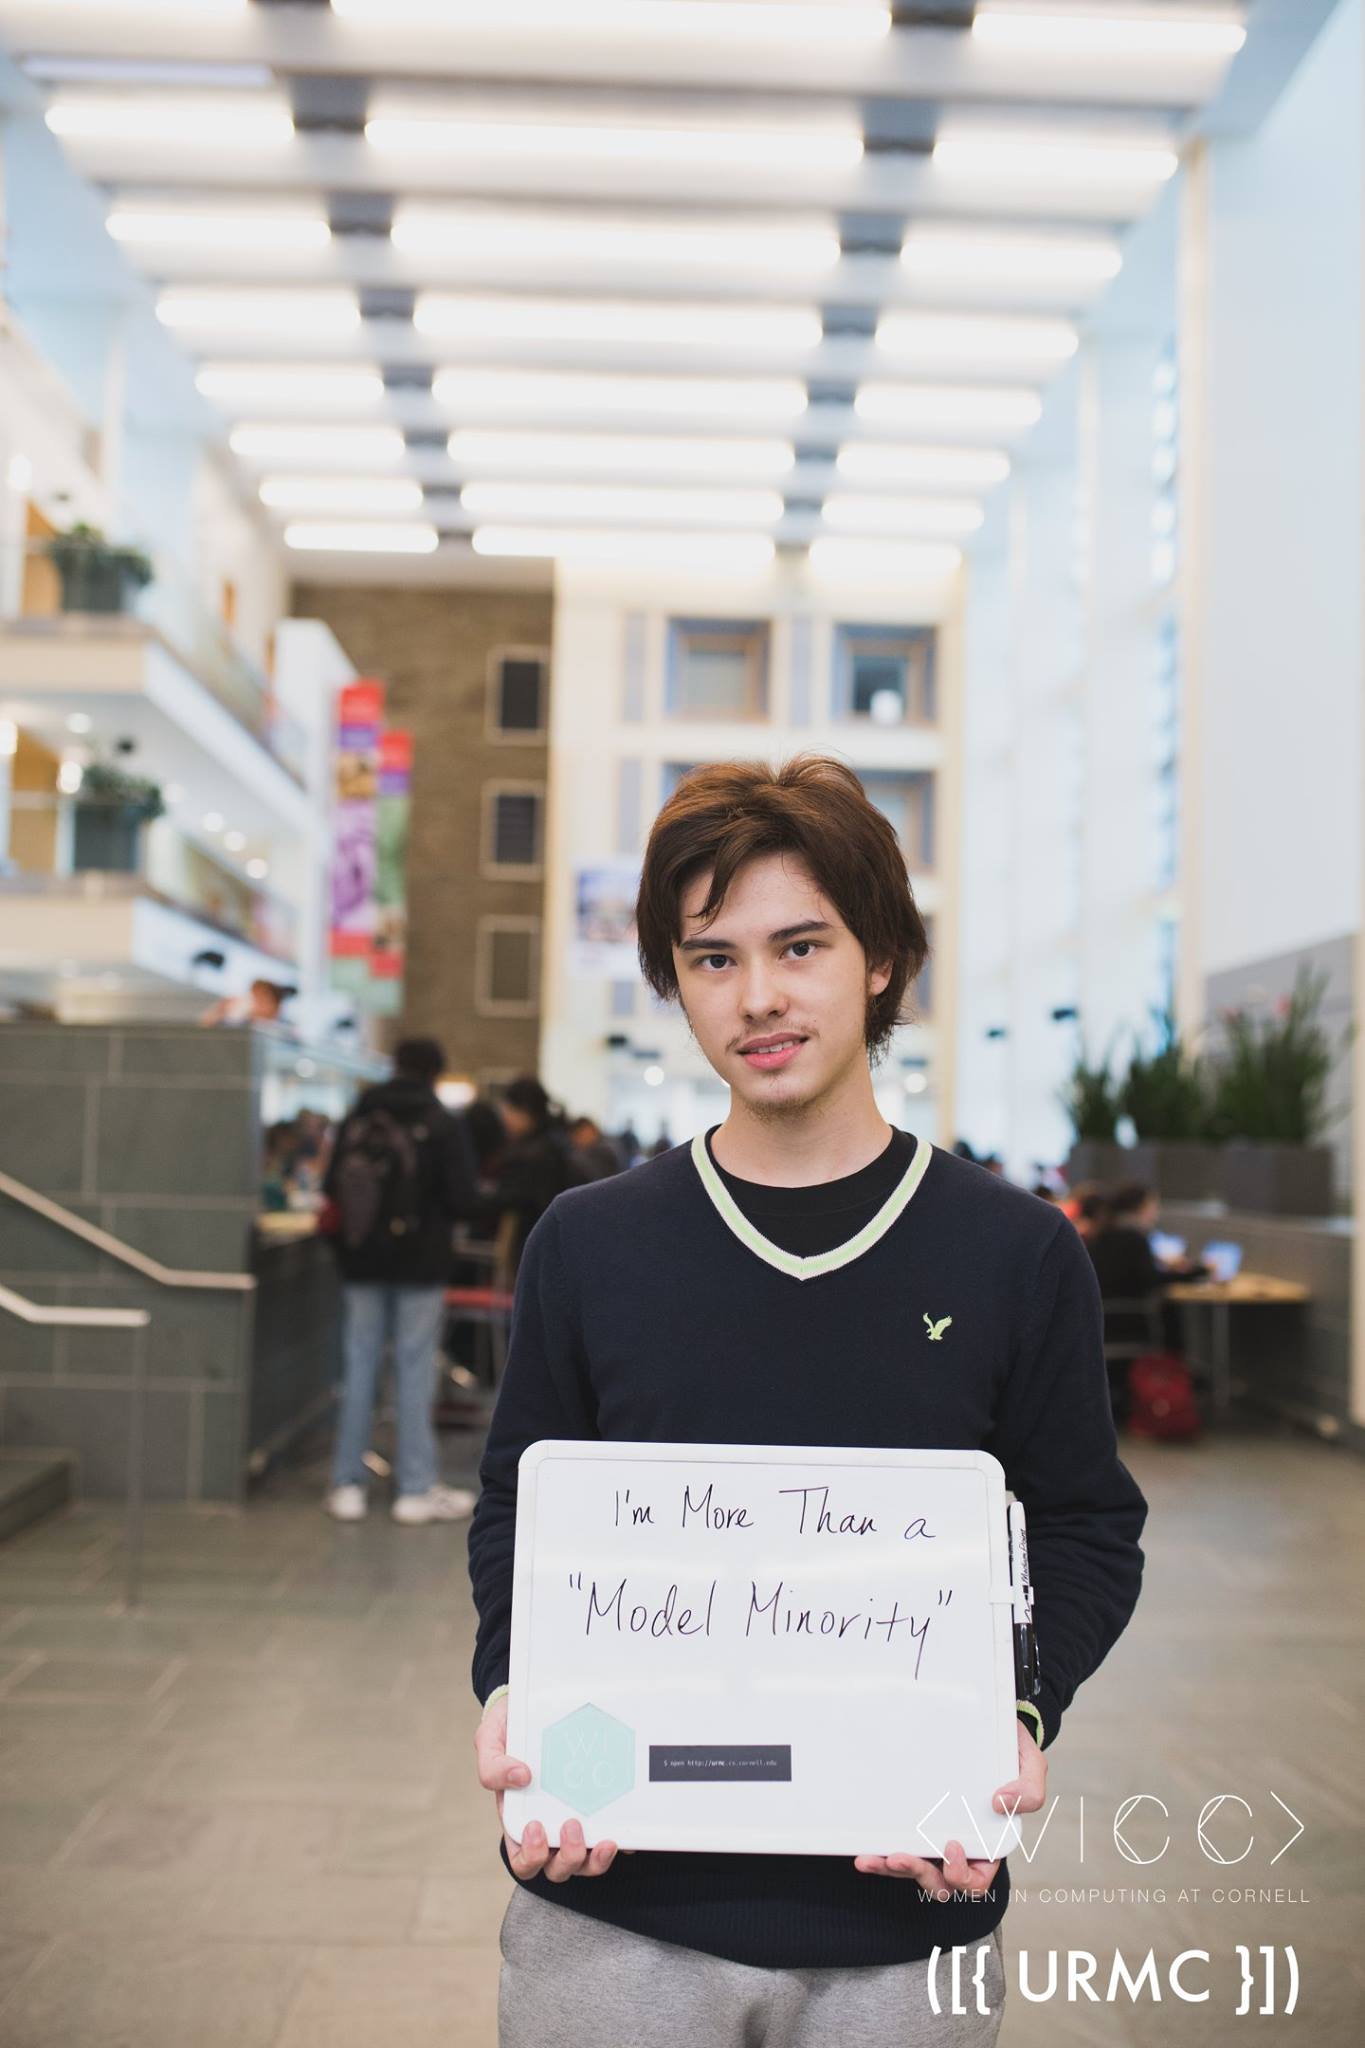 I'm More Than a
"Model Minority"
WI
CC
$ open http://urmc.cs.cornell.edu
<WICC>
WOMEN IN COMPUTING AT CORNELL
([{ URMC }])